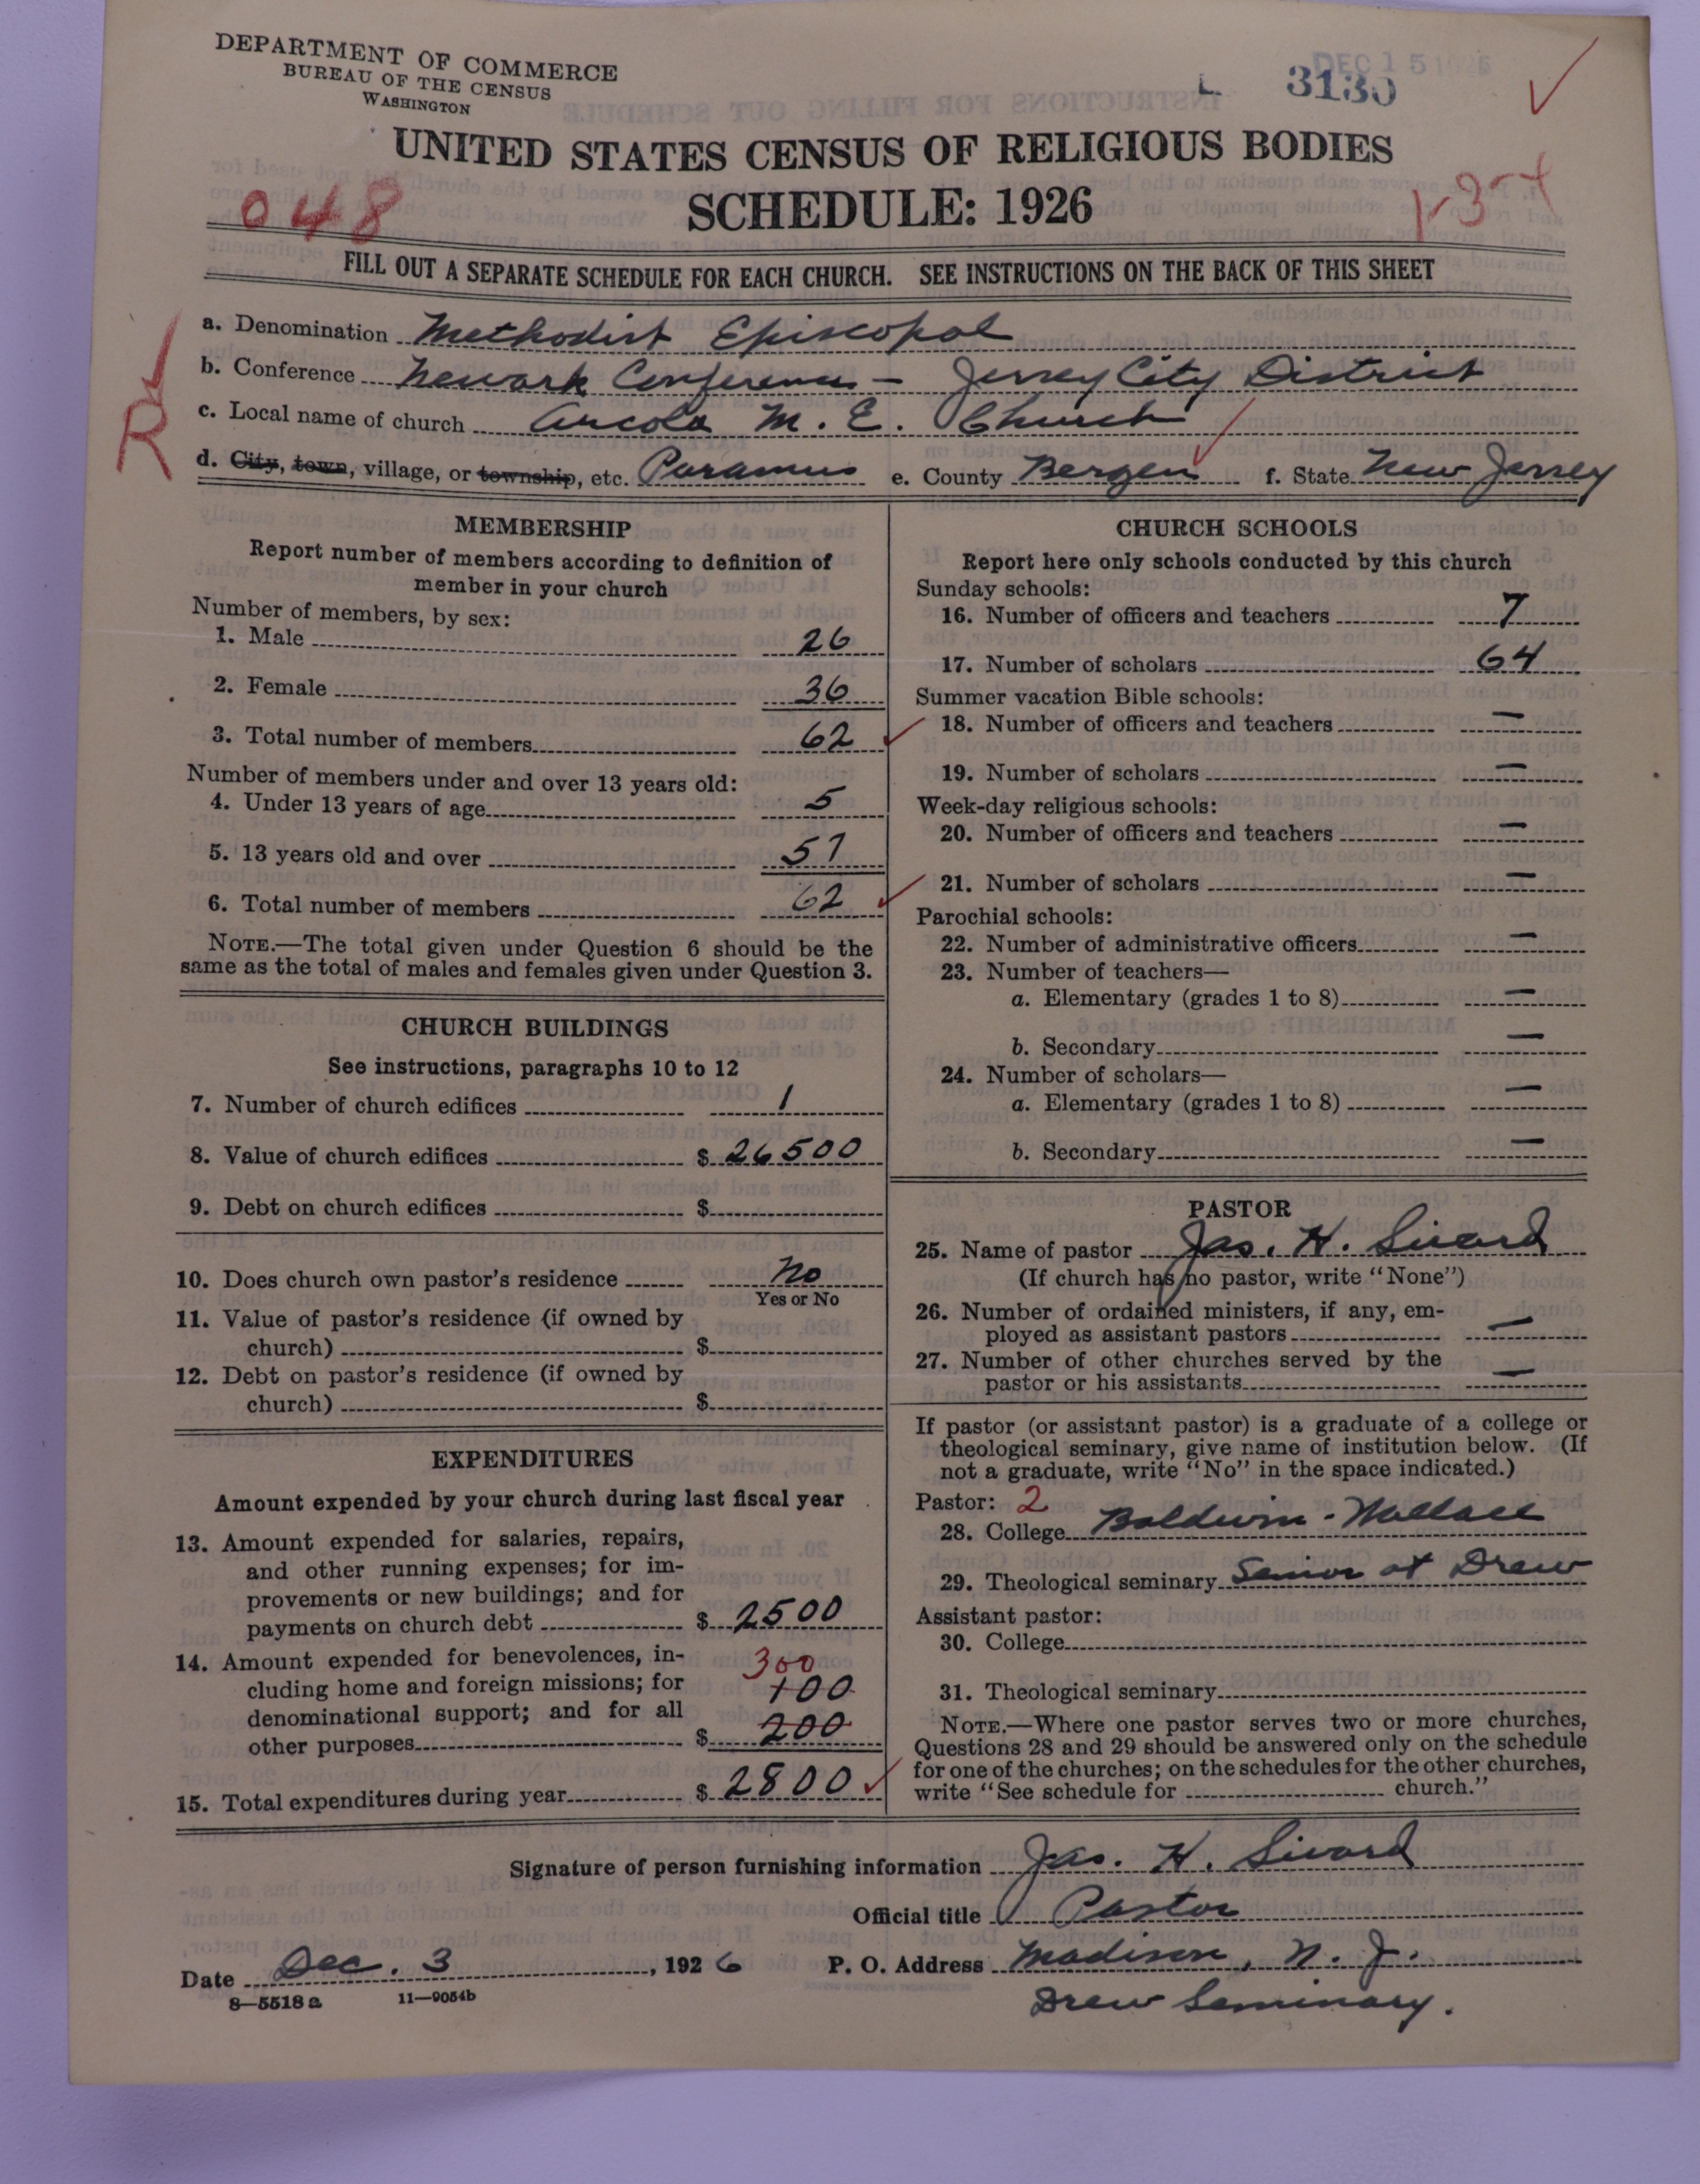 DEPARTMENT OF COMMERCE
BUREAU OF THE CENSUS
WASHINGTON
DEC 15 1926
L 3130
UNITED STATES CENSUS OF RELIGIOUS BODIES
048
SCHEDULE: 1926
FILL OUT A SEPARATE SCHEDULE FOR EACH CHURCH. SEE INSTRUCTIONS ON THE BACK OF THIS SHEET
R
a. Denomination Methodist Episcopal
b. Conference Newark Conference - Jersey City District
c. Local name of church Arcola M. E. Church
d. City, town, village, or township, etc. Paramus e. County Bergen f. State New Jersey
MEMBERSHIP
Report number of members according to definition of
member in your church
Number of members, by sex:
1. Male 26
2. Female 36
3. Total number of members 62
Number of members under and over 13 years old:
4. Under 13 years of age 5
5. 13 years old and over 57
6. Total number of members 62
NOTE.—The total given under Question 6 should be the
same as the total of males and females given under Question 3.
CHURCH BUILDINGS
See instructions, paragraphs 10 to 12
7. Number of church edifices 1
8. Value of church edifices $ 26500
9. Debt on church edifices $
10. Does church own pastor's residence No
Yes or No
11. Value of pastor's residence (if owned by
church) $
12. Debt on pastor's residence (if owned by
church) $
EXPENDITURES
Amount expended by your church during last fiscal year
13. Amount expended for salaries, repairs,
and other running expenses; for im-
provements or new buildings; and for
payments on church debt $ 2500
14. Amount expended for benevolences, in- 300
cluding home and foreign missions; for 100
denominational support; and for all
other purposes $ 200
15. Total expenditures during year $ 2800
CHURCH SCHOOLS
Report here only schools conducted by this church
Sunday schools:
16. Number of officers and teachers 7
17. Number of scholars 64
Summer vacation Bible schools:
18. Number of officers and teachers —
19. Number of scholars —
Week-day religious schools:
20. Number of officers and teachers —
21. Number of scholars —
Parochial schools:
22. Number of administrative officers —
23. Number of teachers—
a. Elementary (grades 1 to 8) —
b. Secondary —
24. Number of scholars—
a. Elementary (grades 1 to 8) —
b. Secondary —
PASTOR
25. Name of pastor Jas. H. Sivard
(If church has no pastor, write "None")
26. Number of ordained ministers, if any, em-
ployed as assistant pastors —
27. Number of other churches served by the
pastor or his assistants —
If pastor (or assistant pastor) is a graduate of a college or
theological seminary, give name of institution below. (If
not a graduate, write "No" in the space indicated.)
Pastor: 2
28. College Baldwin-Wallace
29. Theological seminary Senior at Drew
Assistant pastor:
30. College
31. Theological seminary
NOTE.—Where one pastor serves two or more churches,
Questions 28 and 29 should be answered only on the schedule
for one of the churches; on the schedules for the other churches,
write "See schedule for church."
Signature of person furnishing information Jas. H. Sivard
Official title Pastor
Date Dec. 3, 1926 P. O. Address Madison, N. J.
8—5518 a 11—9054b
Drew Seminary.